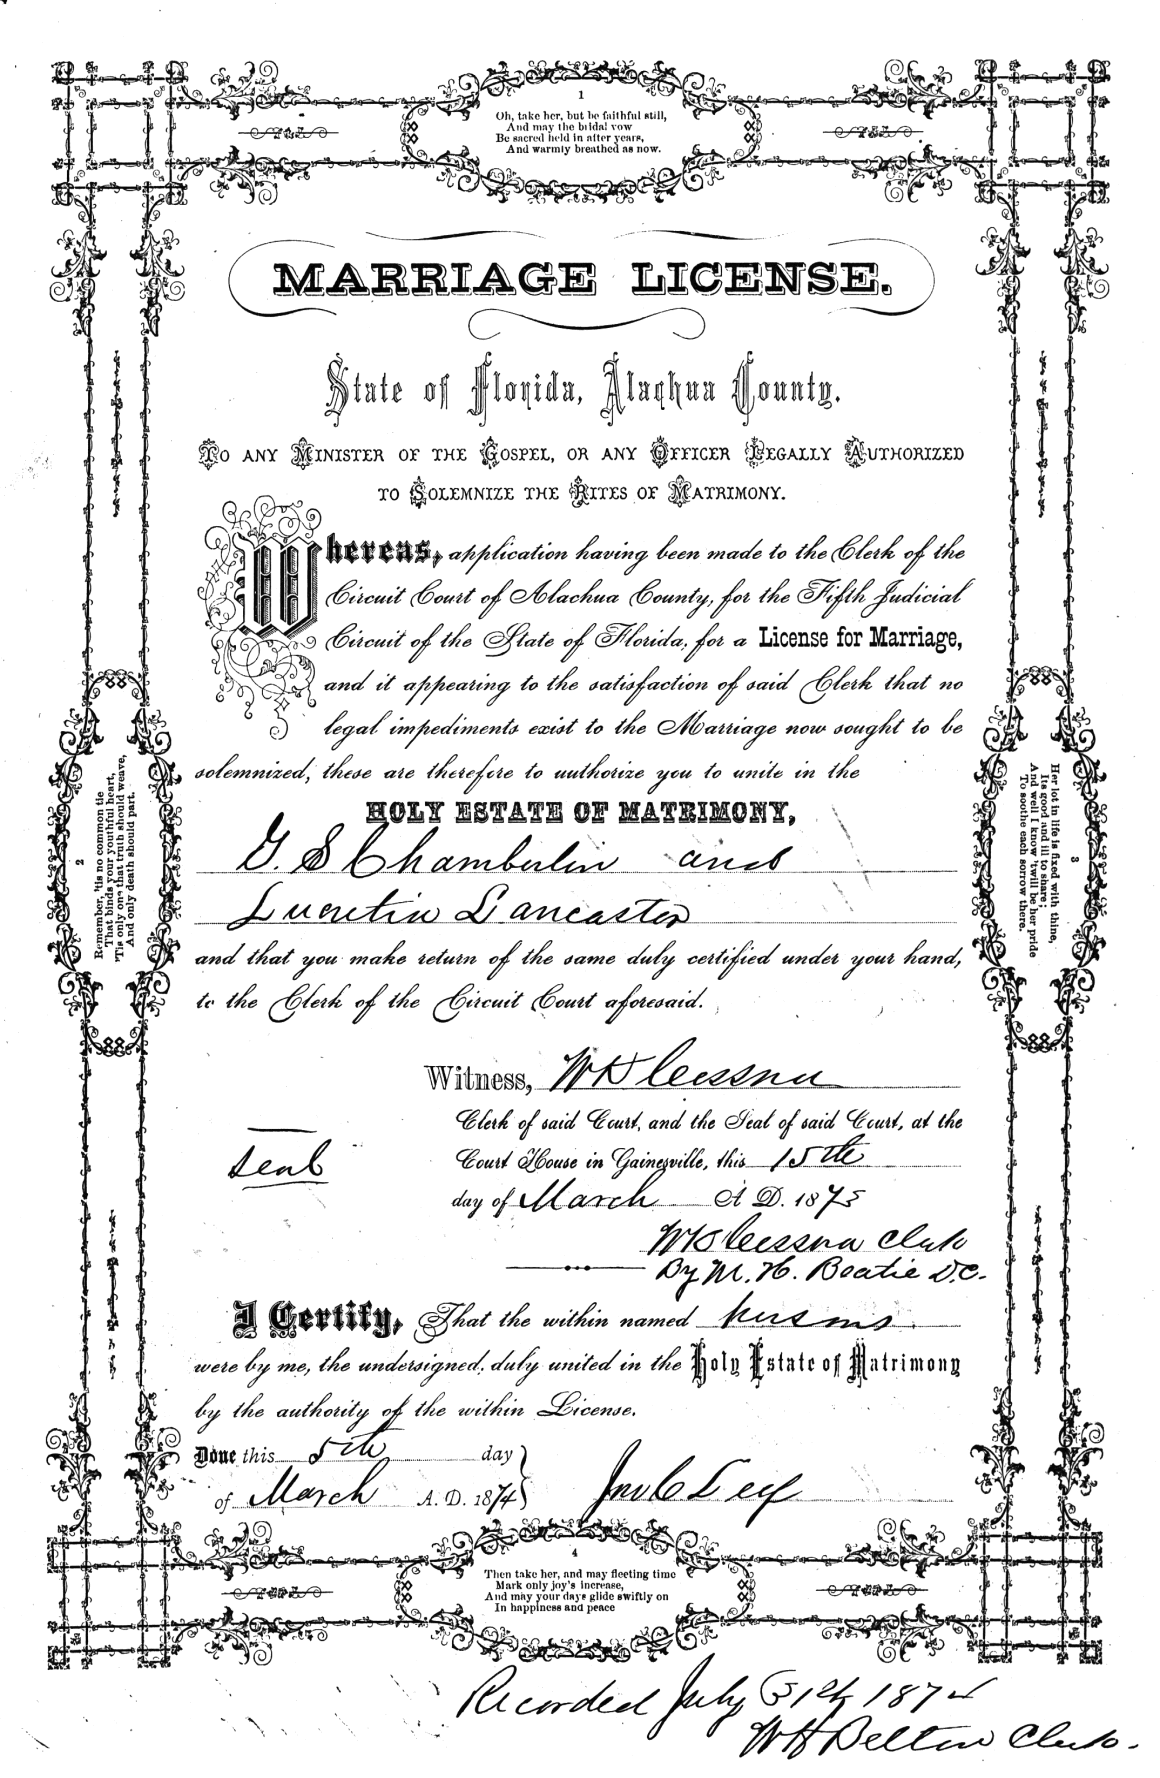 1
Oh, take her, but be faithful still,
And may the bridal vow
Be sacred held in after years,
And warmly breathed as now.
MARRIAGE LICENSE.
State of Florida, Alachua County.
TO ANY MINISTER OF THE GOSPEL, OR ANY OFFICER LEGALLY AUTHORIZED
TO SOLEMNIZE THE RITES OF MATRIMONY.
Whereas, application having been made to the Clerk of the
Circuit Court of Alachua County, for the Fifth Judicial
Circuit of the State of Florida, for a License for Marriage,
and it appearing to the satisfaction of said Clerk that no
legal impediments exist to the Marriage now sought to be
solemnized, these are therefore to authorize you to unite in the
HOLY ESTATE OF MATRIMONY,
G. S Chamberlin and
Lucretia Lancaster
and that you make return of the same duly certified under your hand,
to the Clerk of the Circuit Court aforesaid.
2
Remember, 'tis no common tie
That binds your youthful heart,
'Tis only one that truth should weave,
And only death should part.
3
Her lot in life is fixed with thine,
Its good and ill to share;
And well I know 'twill be her pride
To soothe each sorrow there.
Witness, W H Cessna
Clerk of said Court, and the Seal of said Court, at the
Seal
Court House in Gainesville, this 15th
day of March A D. 1873
W H Cessna Clerk
By M. H. Beatie D.C.
I Certify, That the within named persons
were by me, the undersigned, duly united in the Holy Estate of Matrimony
by the authority of the within License.
Done this 5th day
of March A. D. 1874
Jno C Ley
4
Then take her, and may fleeting time
Mark only joy's increase,
And may your days glide swiftly on
In happiness and peace
Recorded July 1874
W H Belton Clerk.